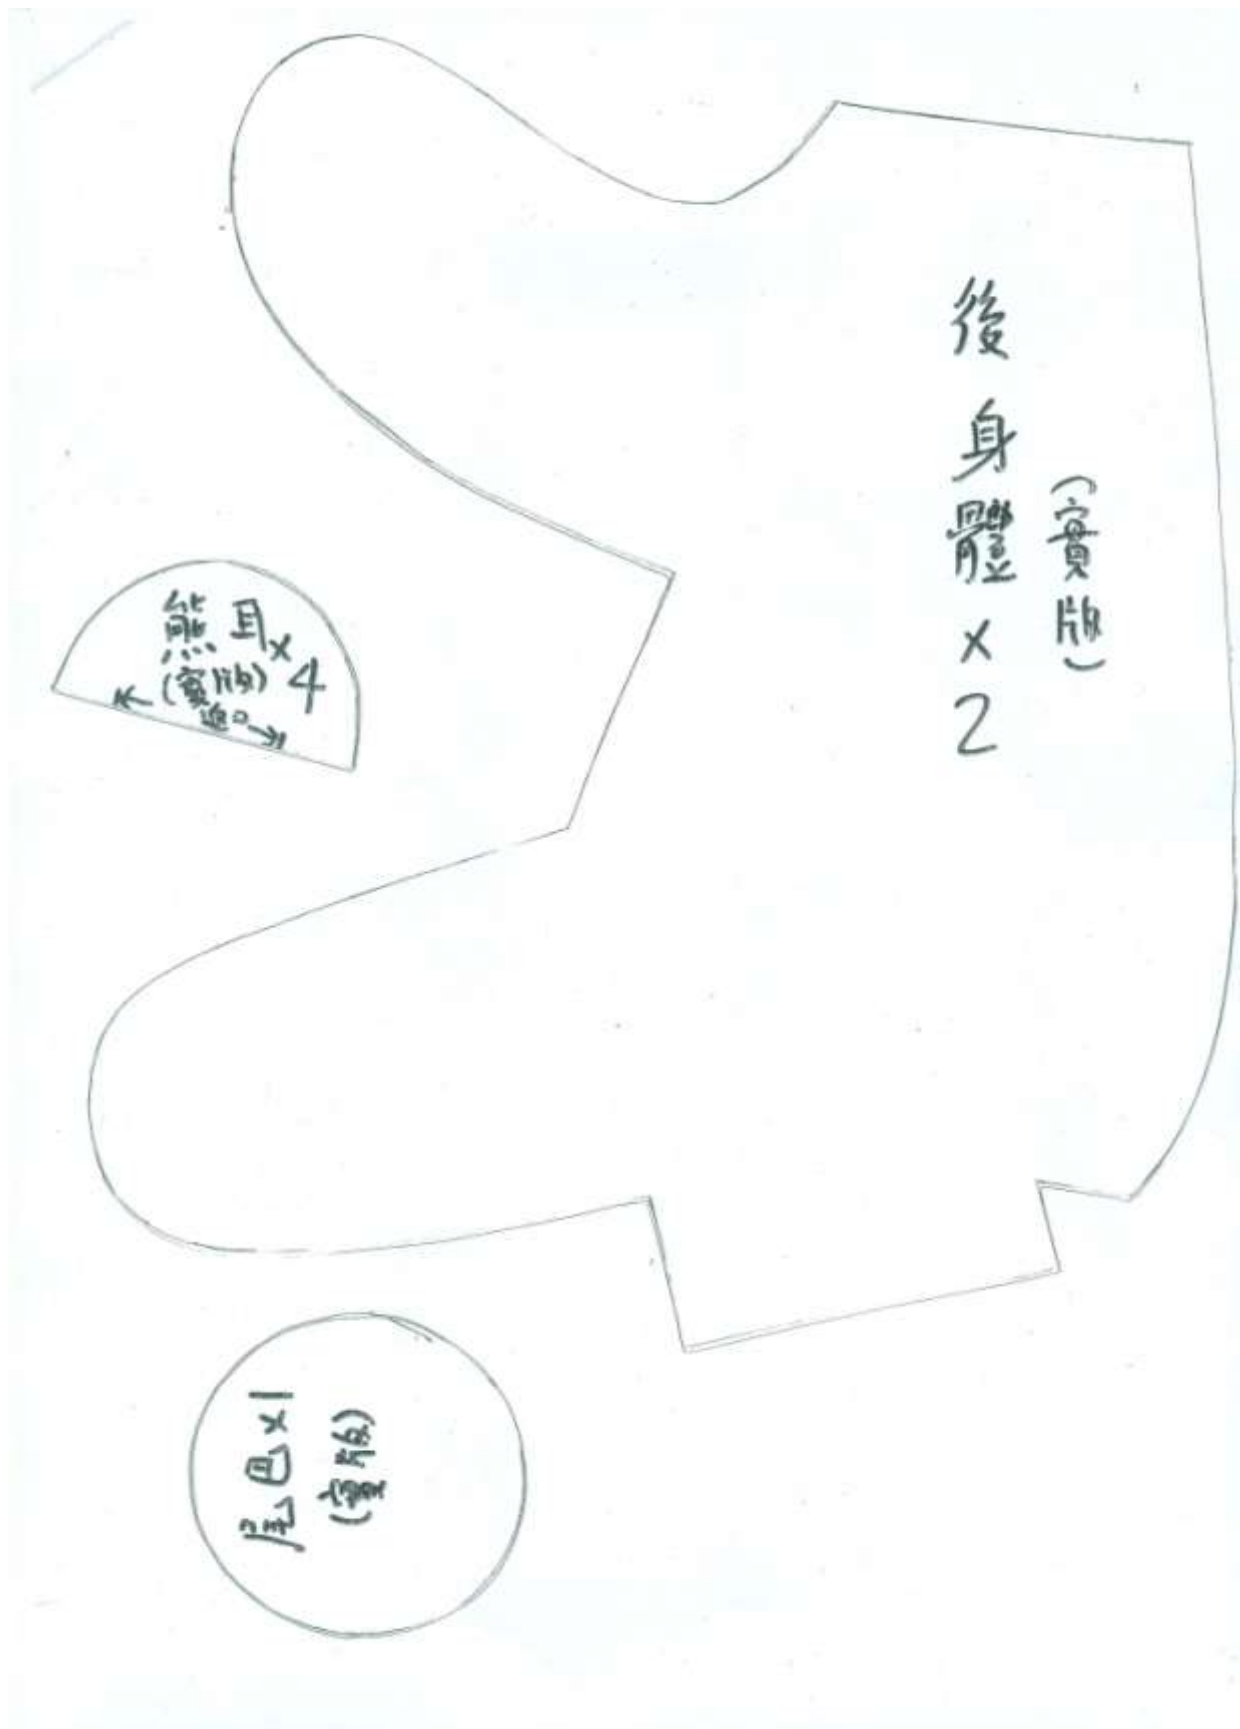 後身體x2
(實版)
熊耳x4
(實版)
返口
尾巴x1
(實版)